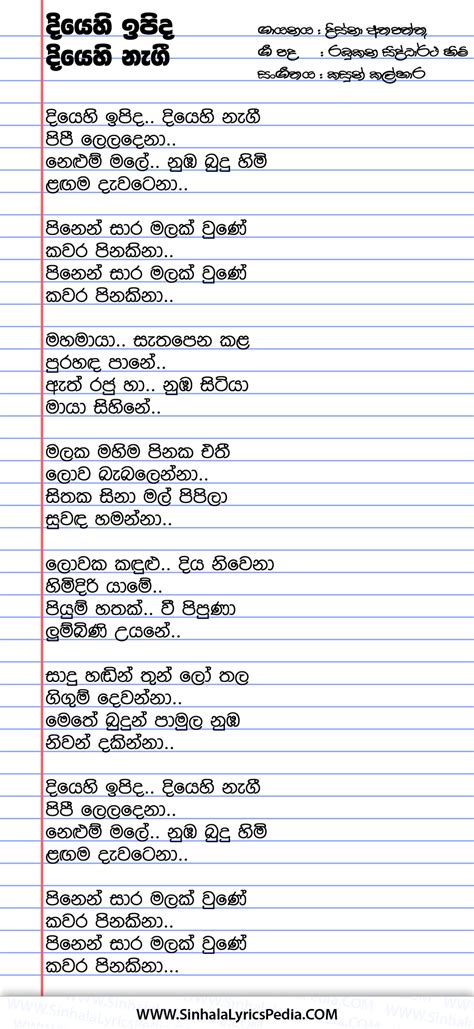 දියෙහි ඉපිද
දියෙහි නැගී
ගායනය : දිස්නා අතපත්තු
ගී පද : රඹුකන සිද්ධාර්ථ හිමි
සංගීතය : කසුන් කල්හාර
දියෙහි ඉපිද.. දියෙහි නැගී
පිපී ලෙලදෙනා..
නෙළුම් මලේ.. නුඹ බුදු හිමි
ළඟම දැවටෙනා..
පිනෙන් සාර මලක් වුණේ
කවර පිනකිනා..
පිනෙන් සාර මලක් වුණේ
කවර පිනකිනා..
මහමායා.. සැතපෙන කළ
පුරහඳ පානේ..
ඇත් රජු හා.. නුඹ සිටියා
මායා සිහිනේ..
මලක මහිම පිනක එතී
ලොව බැබලෙන්නා..
සිතක සිනා මල් පිපිලා
සුවඳ හමන්නා..
ලොවක කඳුළු.. දිය නිවෙනා
හිමිදිරි යාමේ..
පියුම් හතක්.. වී පිපුණා
ලුම්බිණි උයනේ..
සාදු හඬින් තුන් ලෝ තල
ගිගුම් දෙවන්නා..
මෙතේ බුදුන් පාමුල නුඹ
නිවන් දකින්නා..
දියෙහි ඉපිද.. දියෙහි නැගී
පිපී ලෙලදෙනා..
නෙළුම් මලේ.. නුඹ බුදු හිමි
ළඟම දැවටෙනා..
පිනෙන් සාර මලක් වුණේ
කවර පිනකිනා..
පිනෙන් සාර මලක් වුණේ
කවර පිනකිනා...
www.SinhalaLyricsPedia.COM